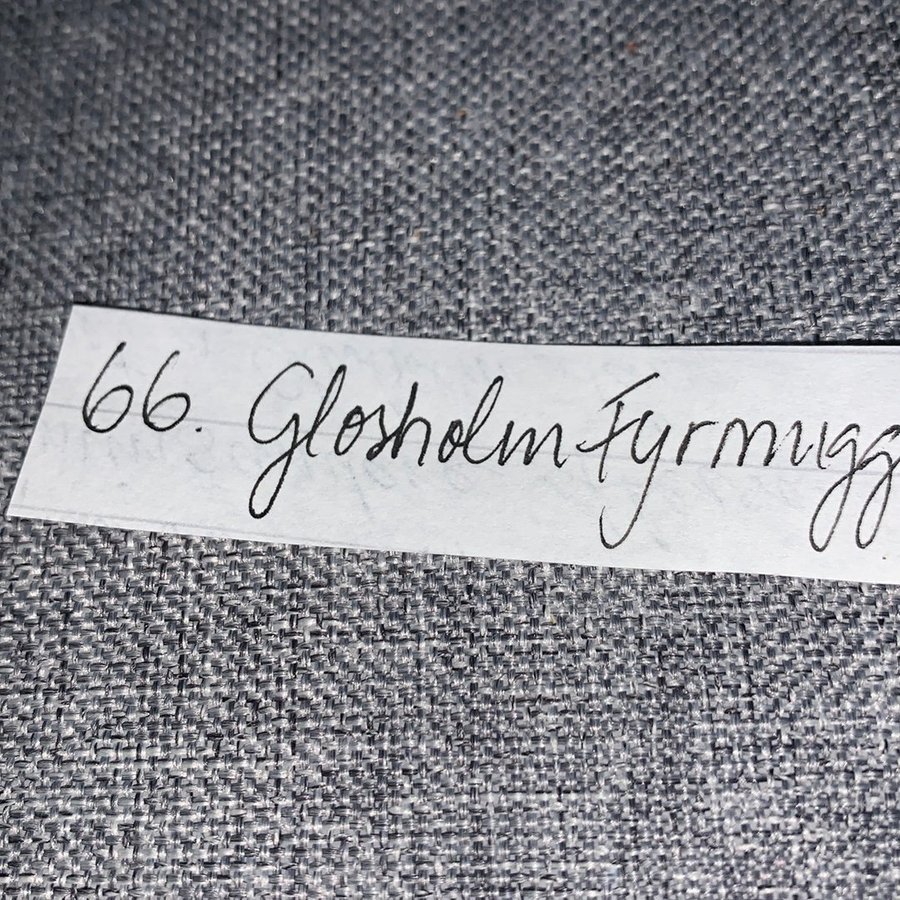 66. Glosholm Fyrmugg